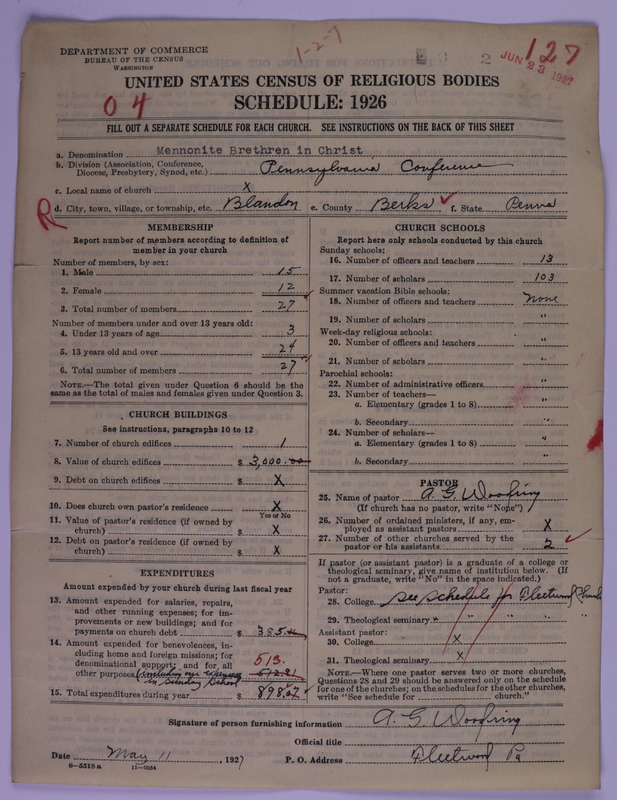 DEPARTMENT OF COMMERCE
BUREAU OF THE CENSUS
WASHINGTON
1-2-7
2
127
JUN 23 1927
UNITED STATES CENSUS OF RELIGIOUS BODIES
SCHEDULE: 1926
04
FILL OUT A SEPARATE SCHEDULE FOR EACH CHURCH. SEE INSTRUCTIONS ON THE BACK OF THIS SHEET
a. Denomination Mennonite Brethren in Christ
b. Division (Association, Conference, Diocese, Presbytery, Synod, etc.) Pennsylvania Conference
c. Local name of church X
R
d. City, town, village, or township, etc. Blandon e. County Berks ✓ f. State Penna
MEMBERSHIP
Report number of members according to definition of
member in your church
Number of members, by sex:
1. Male 15
2. Female 12
3. Total number of members 27
Number of members under and over 13 years old:
4. Under 13 years of age 3
5. 13 years old and over 24
6. Total number of members 27
NOTE.—The total given under Question 6 should be the
same as the total of males and females given under Question 3.
CHURCH BUILDINGS
See instructions, paragraphs 10 to 12
7. Number of church edifices 1
8. Value of church edifices $ 3,000.00
9. Debt on church edifices $ X
10. Does church own pastor's residence X
Yes or No
11. Value of pastor's residence (if owned by
church) $ X
12. Debt on pastor's residence (if owned by
church) $ X
EXPENDITURES
Amount expended by your church during last fiscal year
13. Amount expended for salaries, repairs,
and other running expenses; for im-
provements or new buildings; and for
payments on church debt $ 385.
14. Amount expended for benevolences, in-
cluding home and foreign missions; for
denominational support; and for all
other purposes (including our expenses
in Sunday School 513.
15. Total expenditures during year $ 898.
CHURCH SCHOOLS
Report here only schools conducted by this church
Sunday schools:
16. Number of officers and teachers 13
17. Number of scholars 103
Summer vacation Bible schools:
18. Number of officers and teachers none
19. Number of scholars "
Week-day religious schools:
20. Number of officers and teachers "
21. Number of scholars "
Parochial schools:
22. Number of administrative officers "
23. Number of teachers—
a. Elementary (grades 1 to 8) "
b. Secondary "
24. Number of scholars—
a. Elementary (grades 1 to 8) "
b. Secondary "
PASTOR
25. Name of pastor A. G. Woodring
(If church has no pastor, write "None")
26. Number of ordained ministers, if any, em-
ployed as assistant pastors X
27. Number of other churches served by the
pastor or his assistants 2 ✓
If pastor (or assistant pastor) is a graduate of a college or
theological seminary, give name of institution below. (If
not a graduate, write "No" in the space indicated.)
Pastor:
28. College see schedule for Fleetwood Church
29. Theological seminary " " " " "
Assistant pastor:
30. College X
31. Theological seminary X
NOTE.—Where one pastor serves two or more churches,
Questions 28 and 29 should be answered only on the schedule
for one of the churches; on the schedules for the other churches,
write "See schedule for church."
Signature of person furnishing information A. G. Woodring
Official title
Date May 11, 1927 P. O. Address Fleetwood Pa
8-5518 a 11-9054